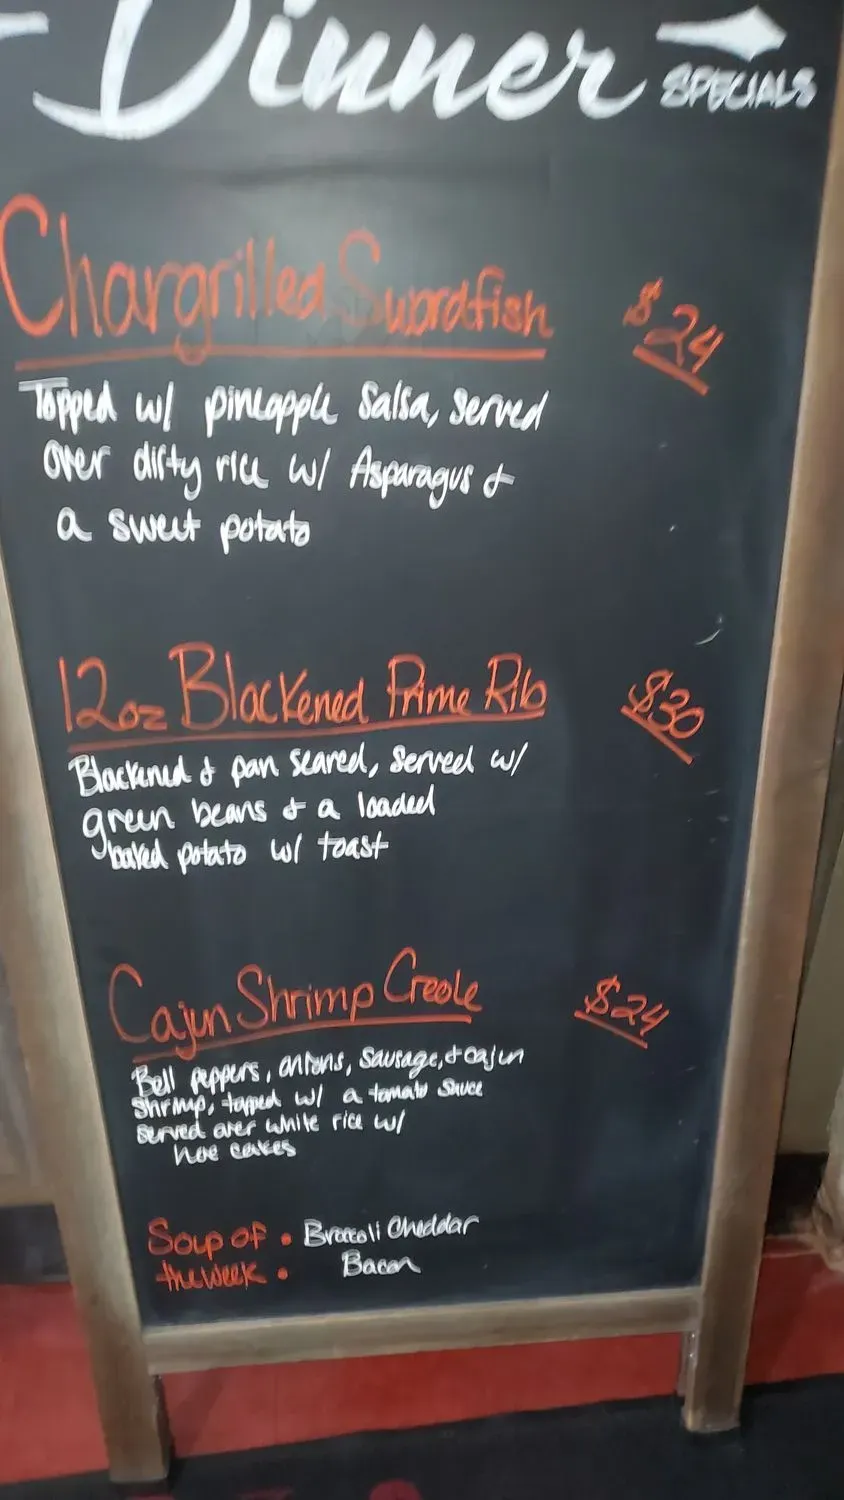 Dinner SPECIALS
Chargrilled Swordfish $24
Topped w/ pineapple Salsa, served
over dirty rice w/ Asparagus &
a sweet potato
12oz Blackened Prime Rib $30
Blackened & pan seared, served w/
green beans & a loaded
baked potato w/ toast
Cajun Shrimp Creole $24
Bell peppers, onions, sausage, & cajun
shrimp, topped w/ a tomato sauce
served over white rice w/
hoe cakes
Soup of : Broccoli Cheddar
the week Bacon